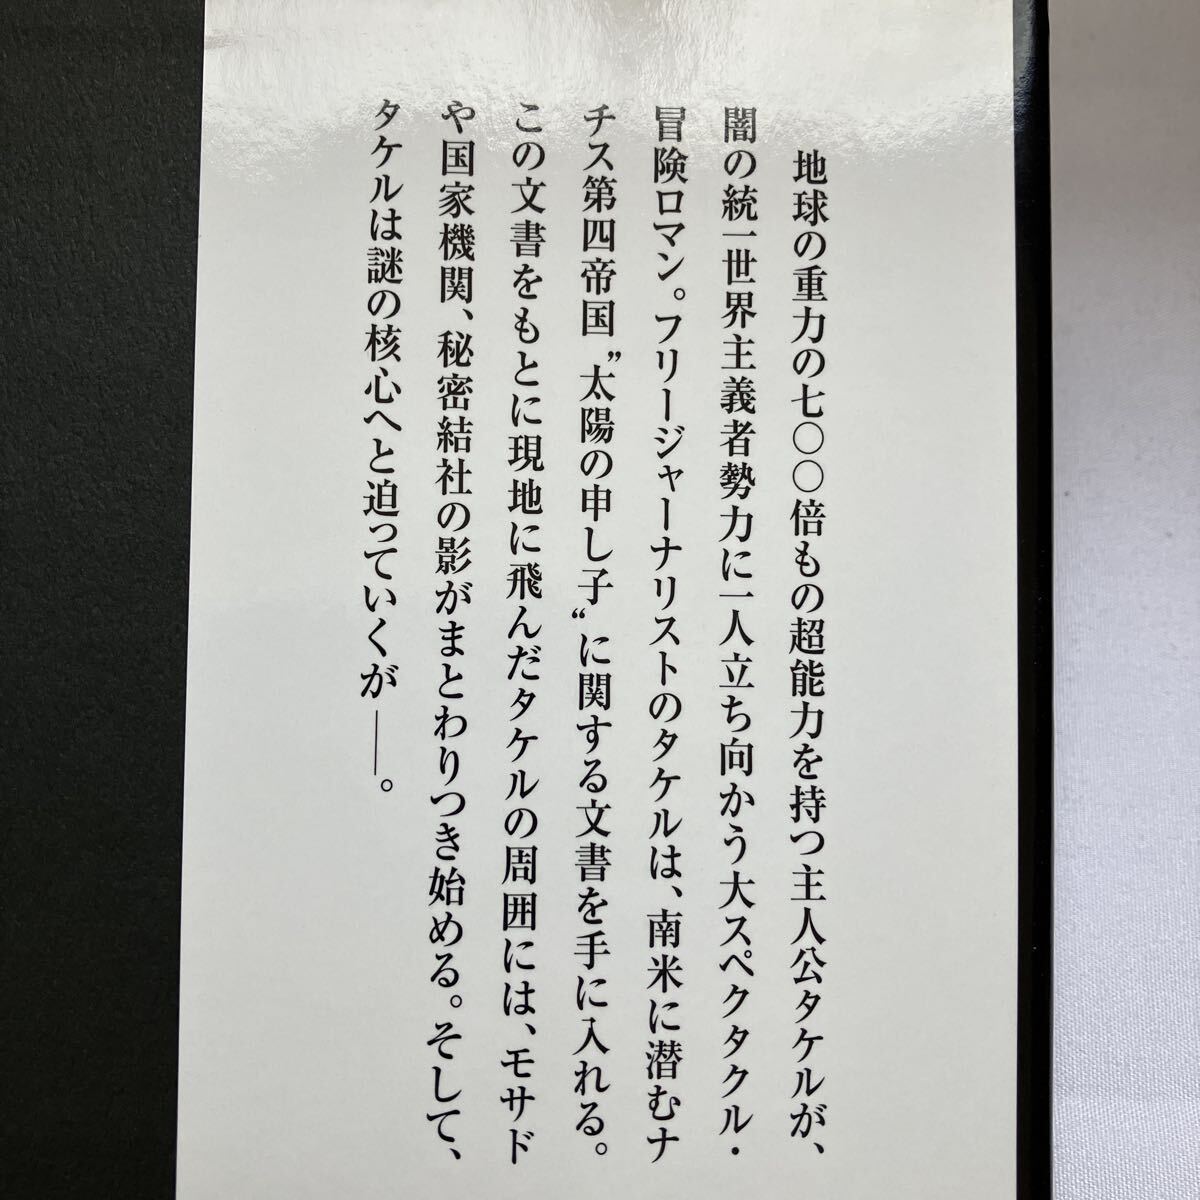 地球の重力の七〇〇倍もの超能力を持つ主人公タケルが、
闇の統一世界主義者勢力に一人立ち向かう大スペクタクル・
冒険ロマン。フリージャーナリストのタケルは、南米に潜むナ
チス第四帝国〝太陽の申し子〟に関する文書を手に入れる。
この文書をもとに現地に飛んだタケルの周囲には、モサド
や国家機関、秘密結社の影がまとわりつき始める。そして、
タケルは謎の核心へと迫っていくが――。